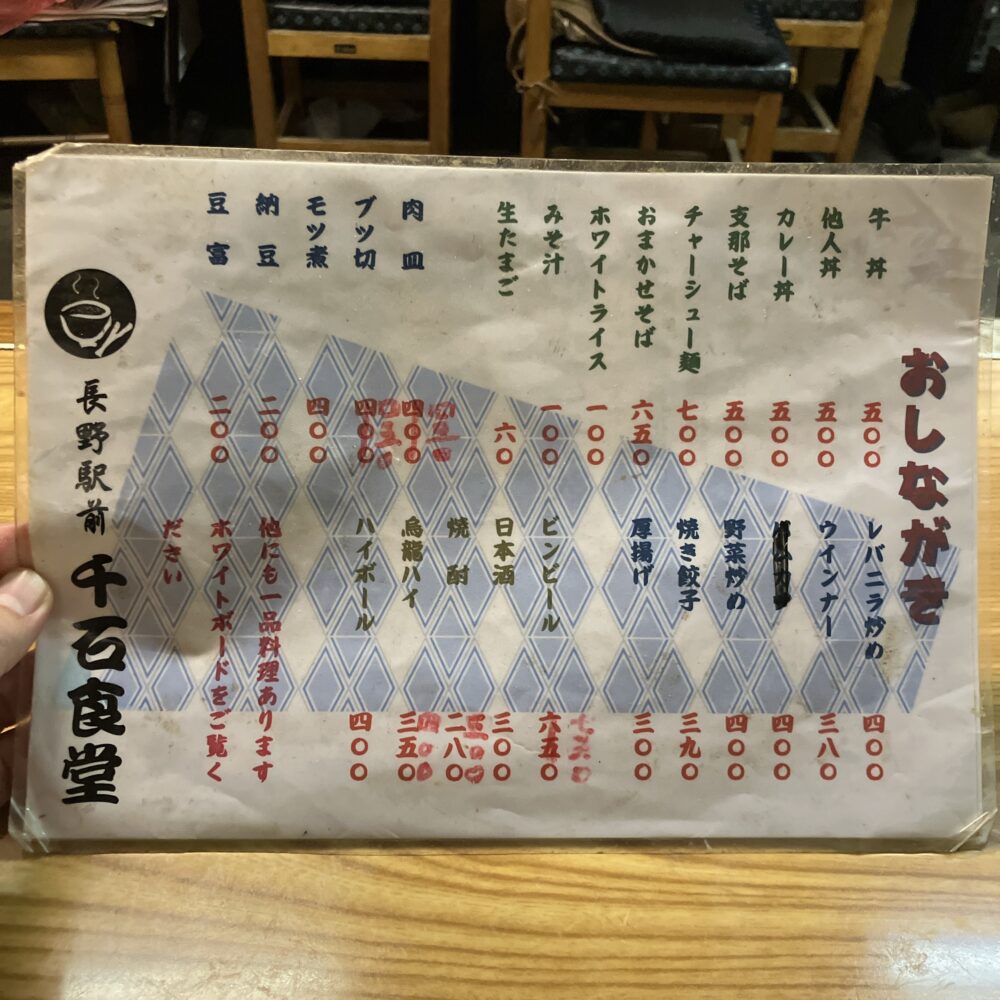 おしながき
牛丼 五〇〇
他人丼 五〇〇
カレー丼 五〇〇
支那そば 五〇〇
チャーシュー麺 七〇〇
おまかせそば 六五〇
ホワイトライス 一〇〇
みそ汁 一〇〇
生たまご 六〇
肉皿 四〇〇
ブツ切 四〇〇 四五〇
モツ煮 四〇〇
納豆 二〇〇
豆富 二〇〇
レバニラ炒め 四〇〇
ウインナー 三八〇
四〇〇
野菜炒め 四〇〇
焼き餃子 三九〇
厚揚げ 三〇〇
ビンビール 六五〇
日本酒 三〇〇
焼酎 二八〇
烏龍ハイ 三五〇 四〇〇
ハイボール 四〇〇
他にも一品料理あります
ホワイトボードをご覧く
ださい
長野駅前 千石食堂